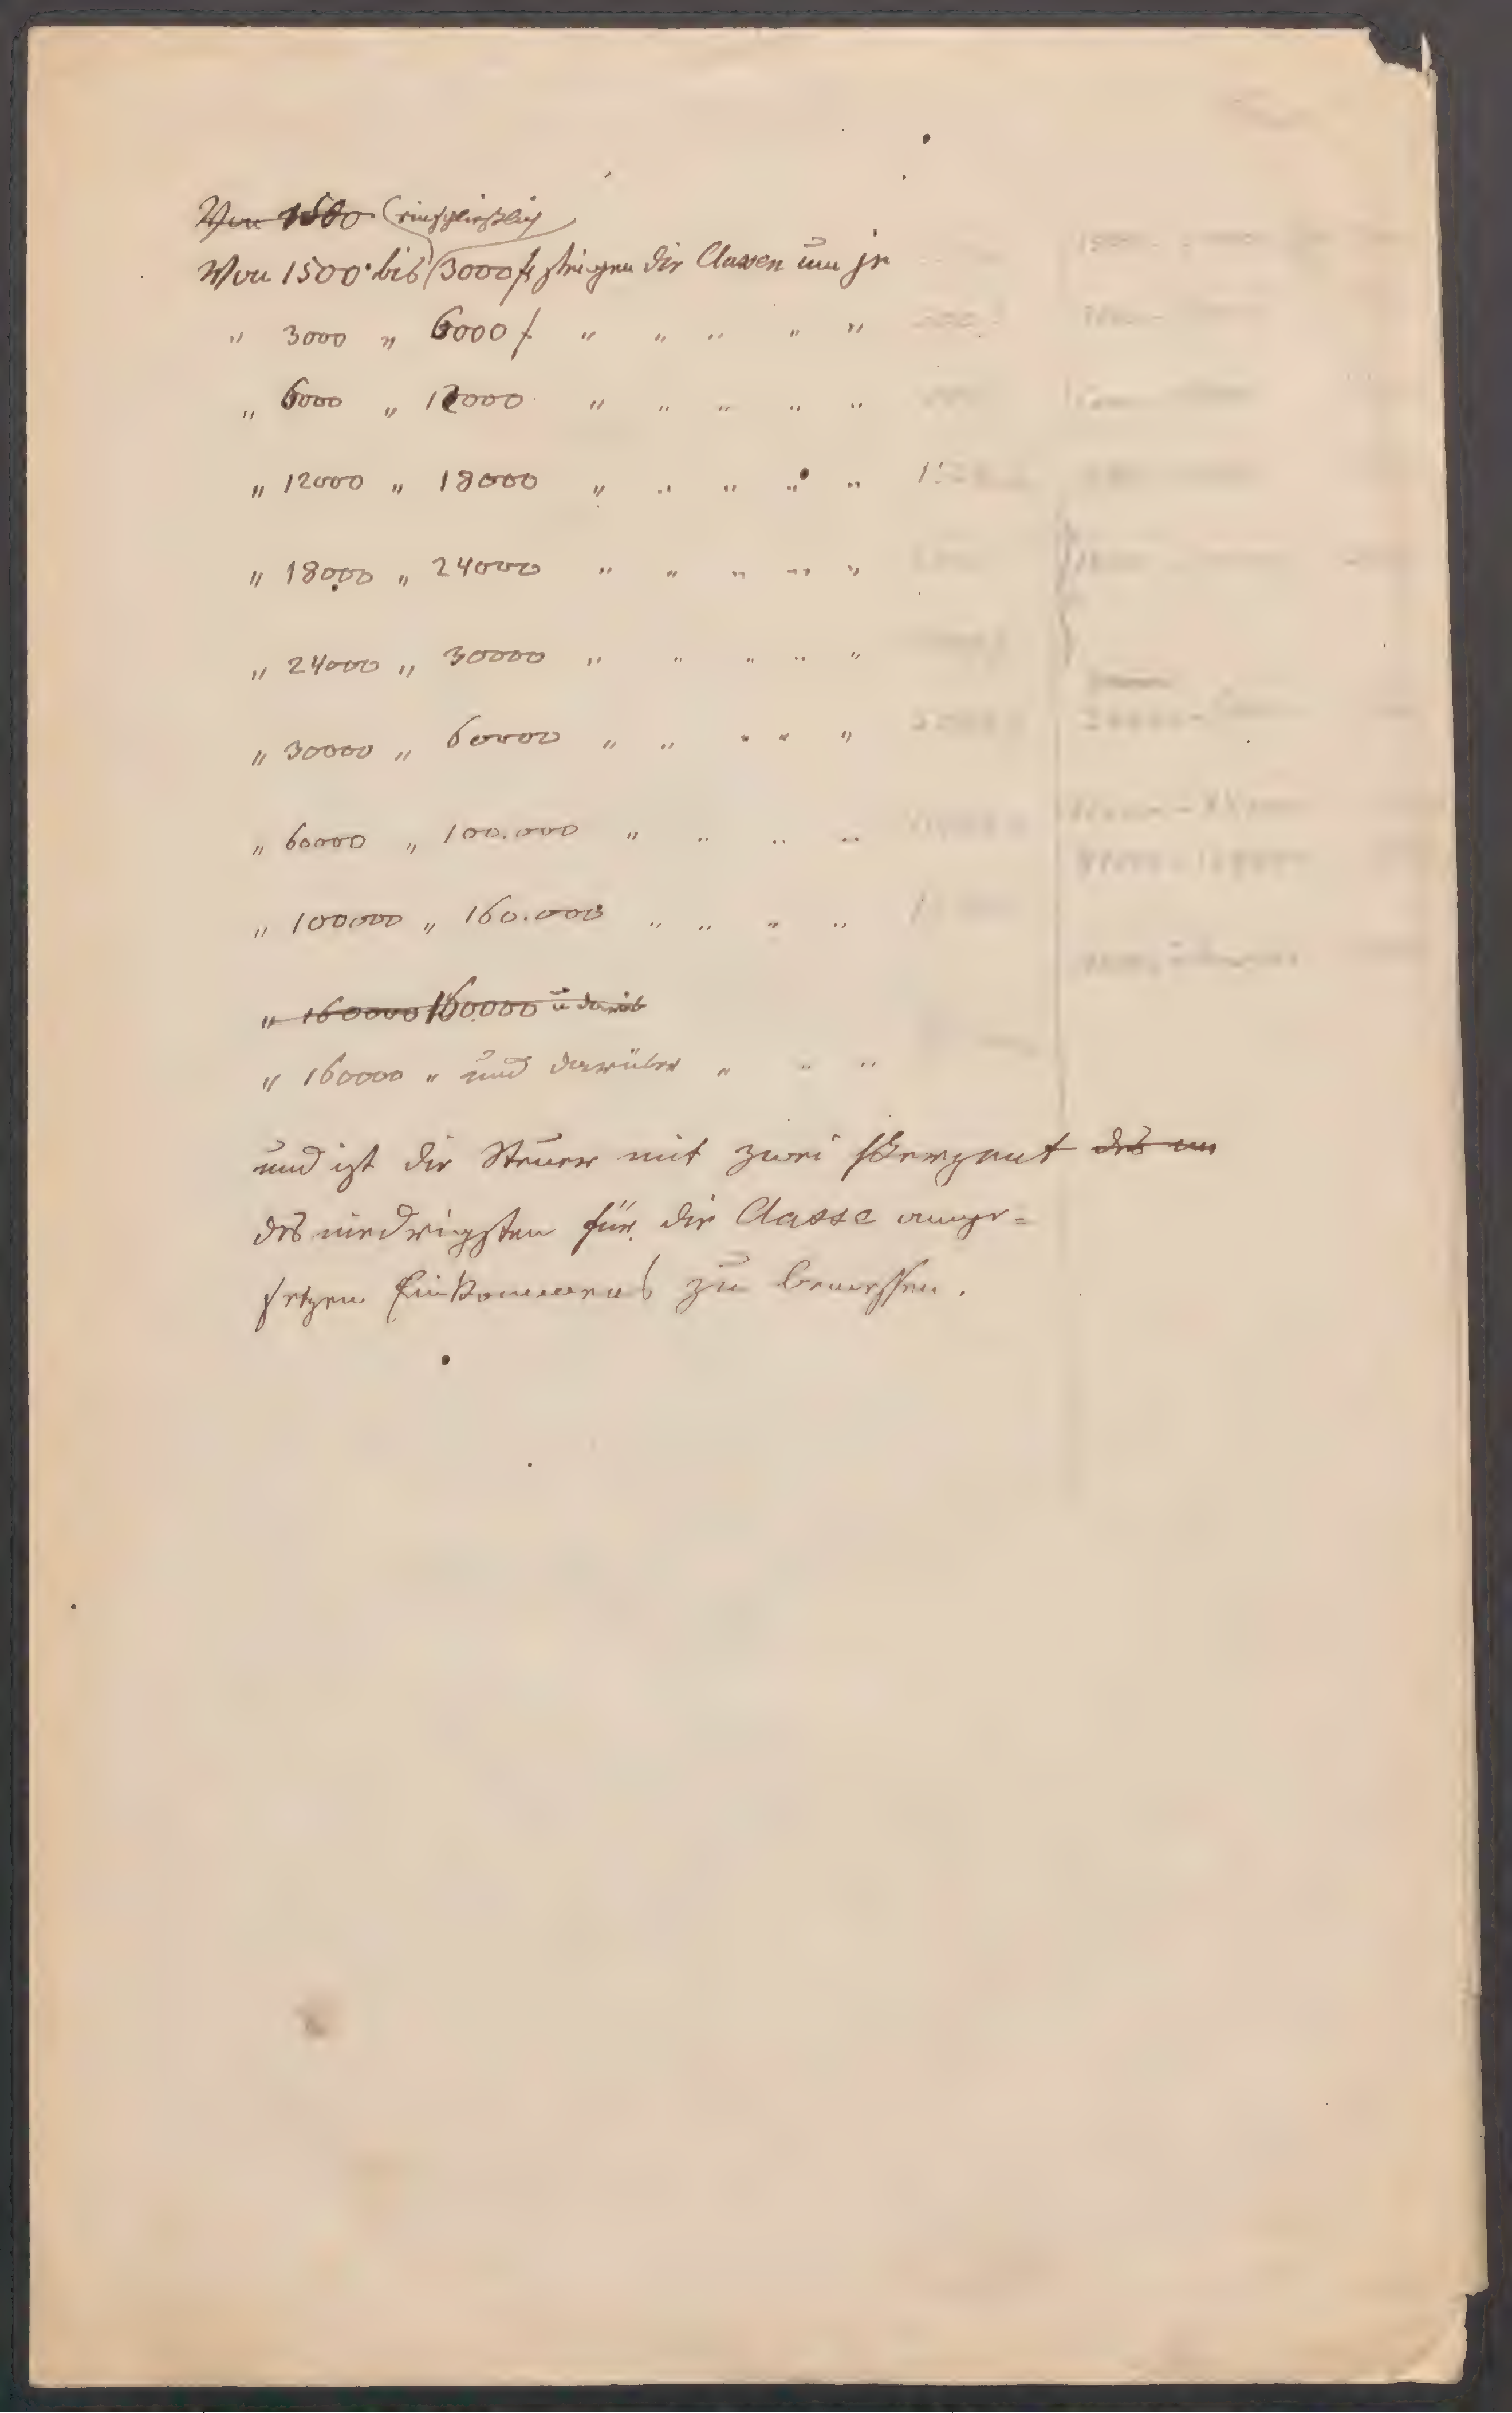 Von 1500 (einschließlich
Von 1500 bis (3000 f steigen die Classen um je
" 3000 " 6000 f " " " " "
" 6000 " 12000 " " " " "
" 12000 " 18000 " " " " "
" 18000 " 24000 " " " " "
" 24000 " 30000 " " " " "
" 30000 " 60000 " " " " "
" 60000 " 100.000 " " " "
" 100000 " 160.000 " " " "
" 160000 160.000 u darüb
" 160000 " und darüber " " "
und ist die Steuer mit zwei Perzent des
des niedrigsten für die Classe ange=
setzen Einkommens zu bemessen.